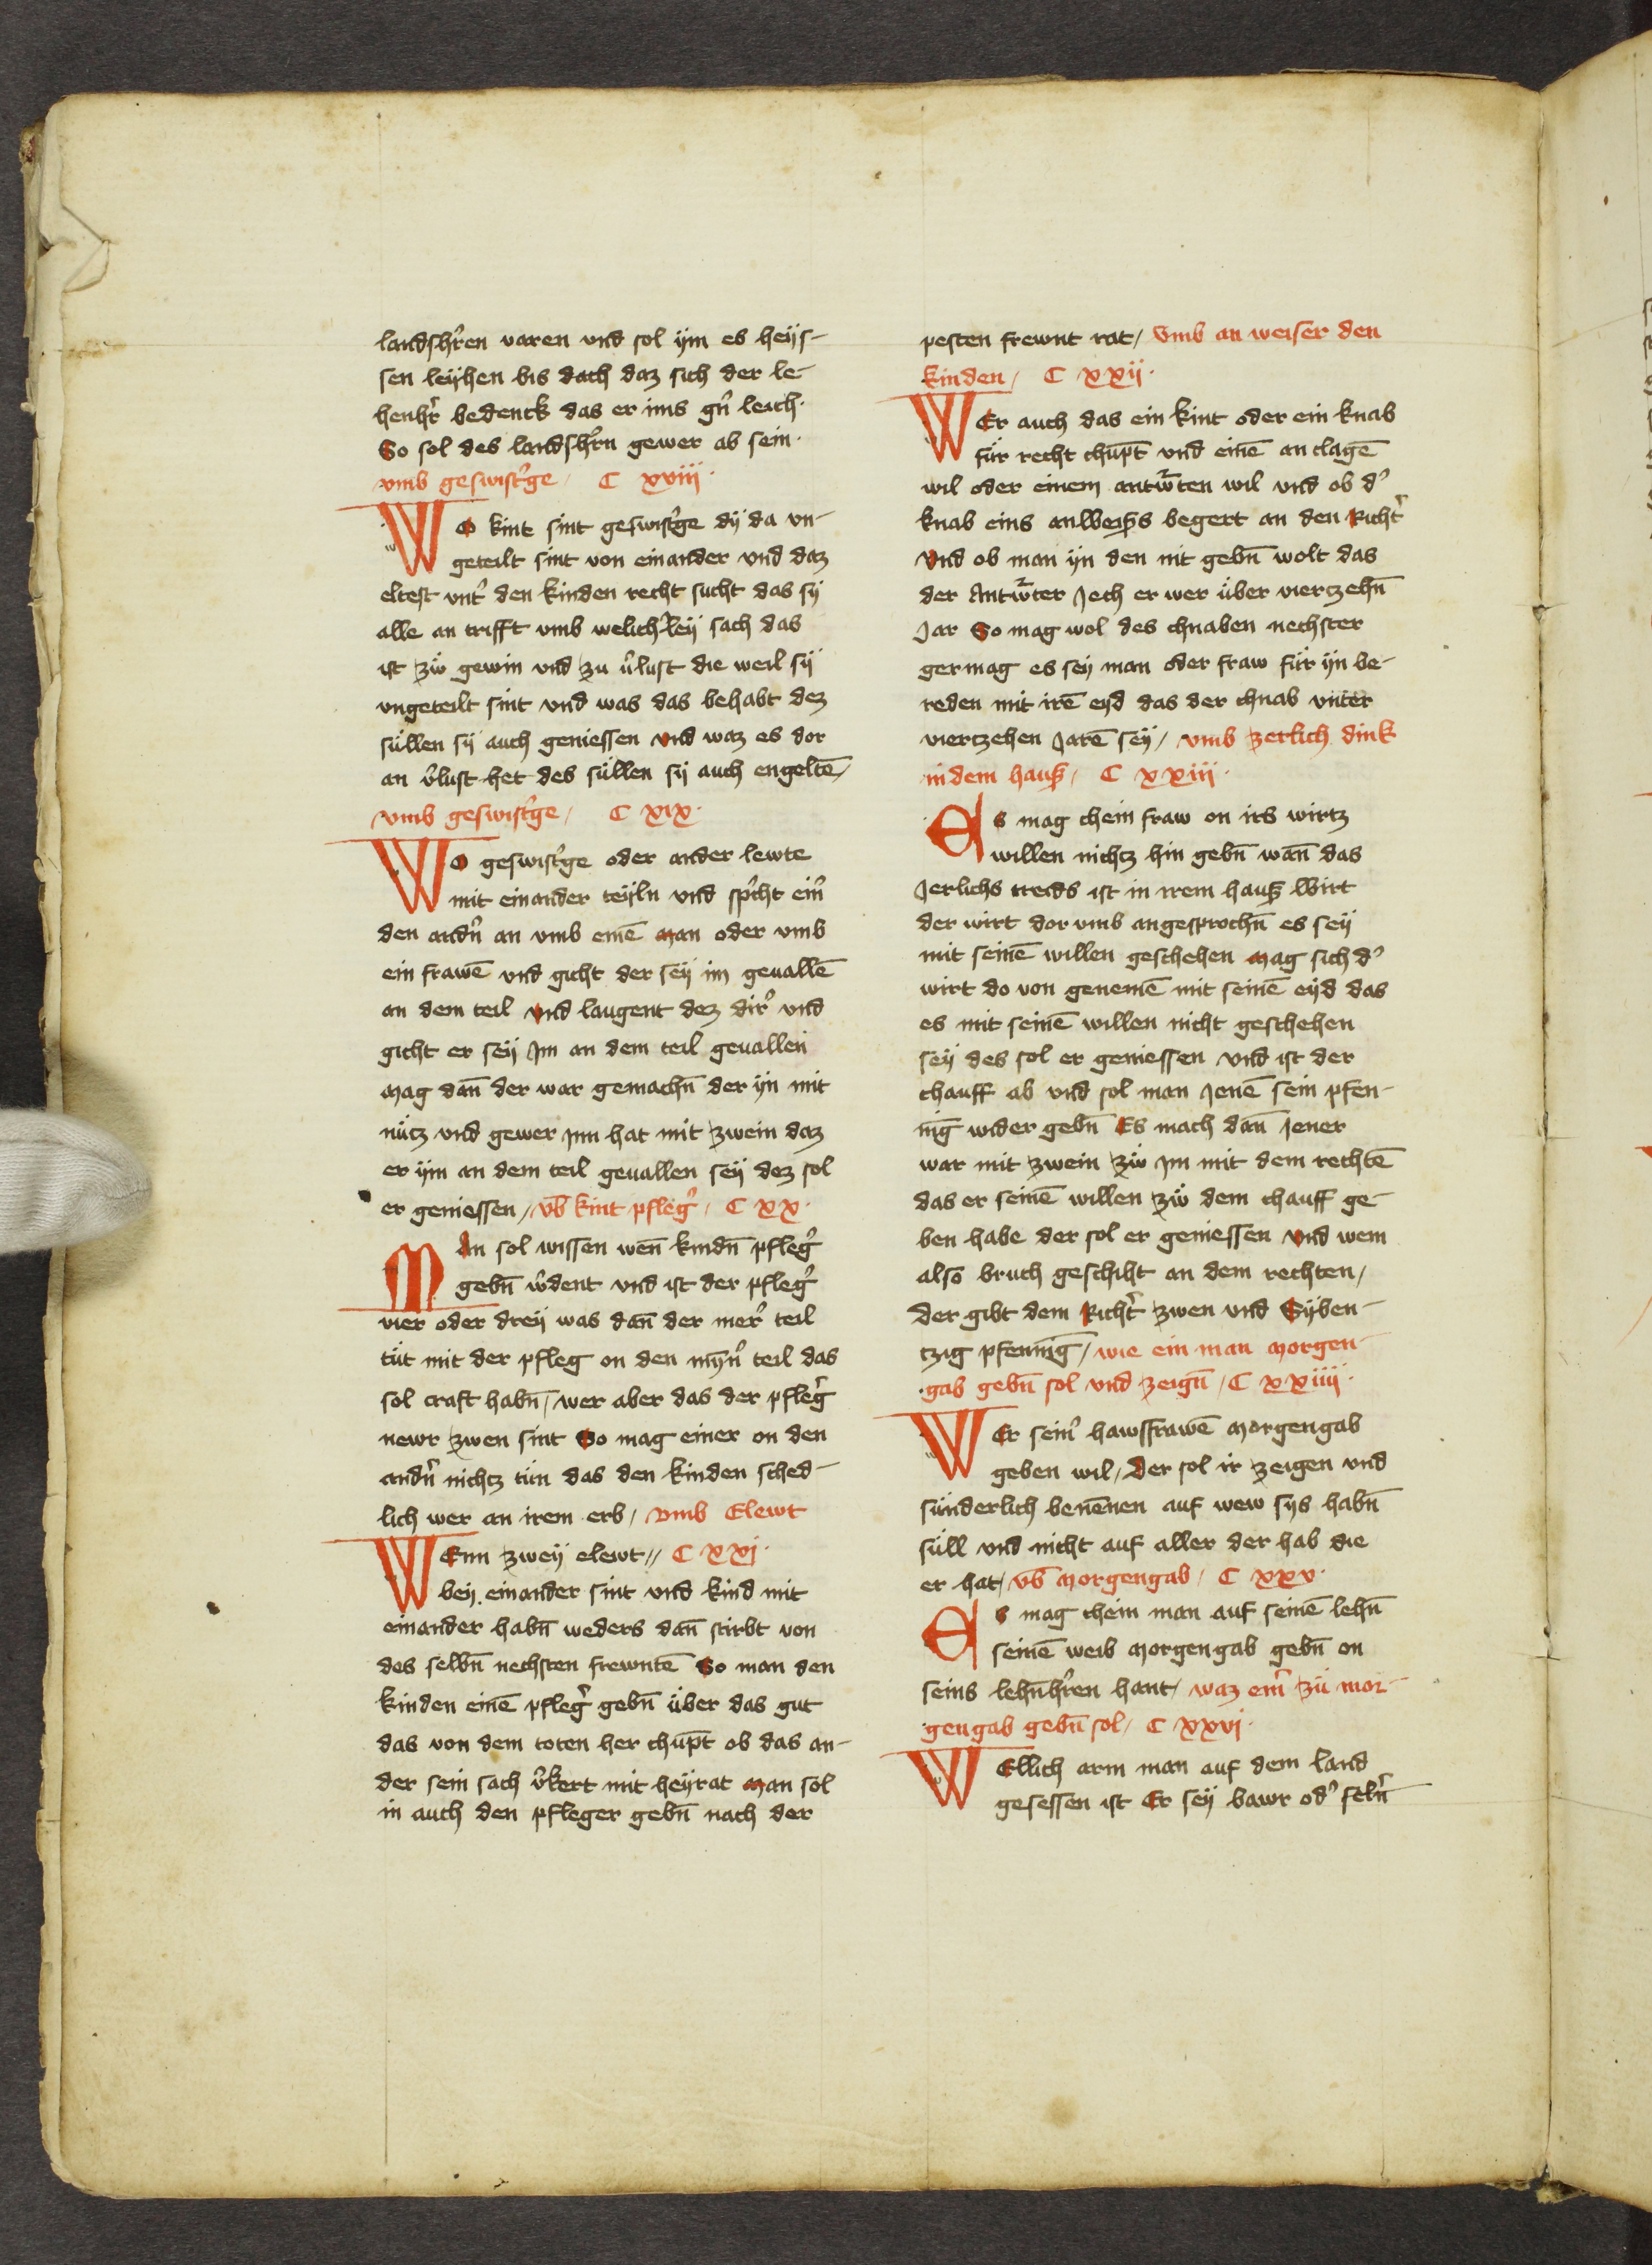 landsh̾ren varen vnd sol ym es heys-
sen leyhen bis dach daz sich der le-
henh̾r bedenck das er ims gn̄ leich·
So sol des landsh̾rn gewer ab sein·
vmb geswist̾ge / C xviii·
WO kint sint geswist̾ge dy da vn-
geteilt sint von einander vnd daz
eltest vnt̾ den kinden recht sucht das sy
alle an trifft vmb welich̾ley sach das
ist zŵ gewin vnd zu v̾lust die weil sy
vngeteilt sint vnd was das behabt dez
süllen sy auch geniessen vnd waz es dor
an v̾lust het des süllen sy auch engeltē /
vmb geswist̾ge / C xix·
WO geswist̾ge oder ander lewte
mit einander teyln vnd sp̾cht ein̾
den andn̾ an vmb einē man oder vmb
ein frawē vnd gicht der sey im geuallē
an dem teil vnd laugent dez dir̾ vnd
gicht er sey Im an dem teil geuallen
Mag dan̄ der war gemachn̄ der yn mit
nütz vnd gewer Inn hat mit zwein daz
er ym an dem teil geuallen sey dez sol
er geniessen / vb̄ kint pfleg̾ / C xx·
MAn sol wissen wen̄ kindn̄ pfleg̾
gebn̄ w̾dent vnd ist der pfleg̾
vier oder drey was dan̄ der mer̾ teil
tüt mit der pfleg on den myn̾ teil das
sol craft habn̄ / wer aber das der pfleg̾
newr zwen sint So mag einer on den
andn̾ nichtz tün das den kinden sched-
lich wer an irem erb / vmb Elewt
WEnn zwey elewt // C xxi·
bey einander sint vnd kind mit
einander habn̄ weders dan̄ stirbt von
des selbn̄ nechsten frewntē So man den
kinden einē pfleg̾ gebn̄ über das gut
das von dem toten her chup̄t ob das an-
der sein sach v̾kert mit heyrat Man sol
in auch den pfleger gebn̄ nach der
pesten frewnt rat / Vmb an weiser den
kinden / C xxii·
WEr auch das ein kint oder ein knab
für recht chup̄t vnd einē an clagē
wil oder einem antw̾ten wil vnd ob d̾
knab eins anweiß̾s begert an den Richt̾
Vnd ob man yn den nit gebn̄ wolt das
der Antw̾ter Jech er wer über viertzehn̄
Jar So mag wol des chnaben nechster
germag es sey man oder fraw für yn be-
reden mit irē eyd das der chnab vnter
viertzehen Jarē sey / vmb zerlich dink
in dem hauß / C xxiii·
Es mag chein fraw on irs wirtz
willen nichtz hin gebn̄ wan̄ das
Jerlichs treids ist in irem hauß wirt
der wirt dor vmb angesprochn̄ es sey
mit seinē willen geschehen Mag sich d̾
wirt do von genemē mit seinē eyd das
es mit seinē willen nicht geschehen
sey des sol er geniessen vnd ist der
chauff ab vnd sol man Jenē sein pfen-
nīg wider gebn̄ Es mach dan̄ Jener
war mit zwein zŵ Im mit dem rechtē
das er seinē willen zŵ dem chauff ge-
ben habe der sol er geniessen vnd wem
also bruch geschiht an dem rechten /
Der gibt dem Richt̾ zwen vnd Syben-
tzig pfennīg / wie ein man Morgen-
gab gebn̄ sol vnd zeign̄ / C xxiiii·
WEr sein̾ hawsfrawē Morgengab
geben wil / Der sol ir zeigen vnd
sünderlich benēnen auf wew sys habn̄
süll vnd nicht auf aller der hab die
er hat / vb̄ Morgengab / C xxv·
Es mag chein man auf seinē lehn̄
seinē weib Morgengab gebn̄ on
seins lehn̄h̾ren hant / waz ein̾ zü mor-
gengab gebn̄ sol / C xxvi·
WEllich arm man auf dem land
gesessen ist Er sey bawr od̾ seln̾